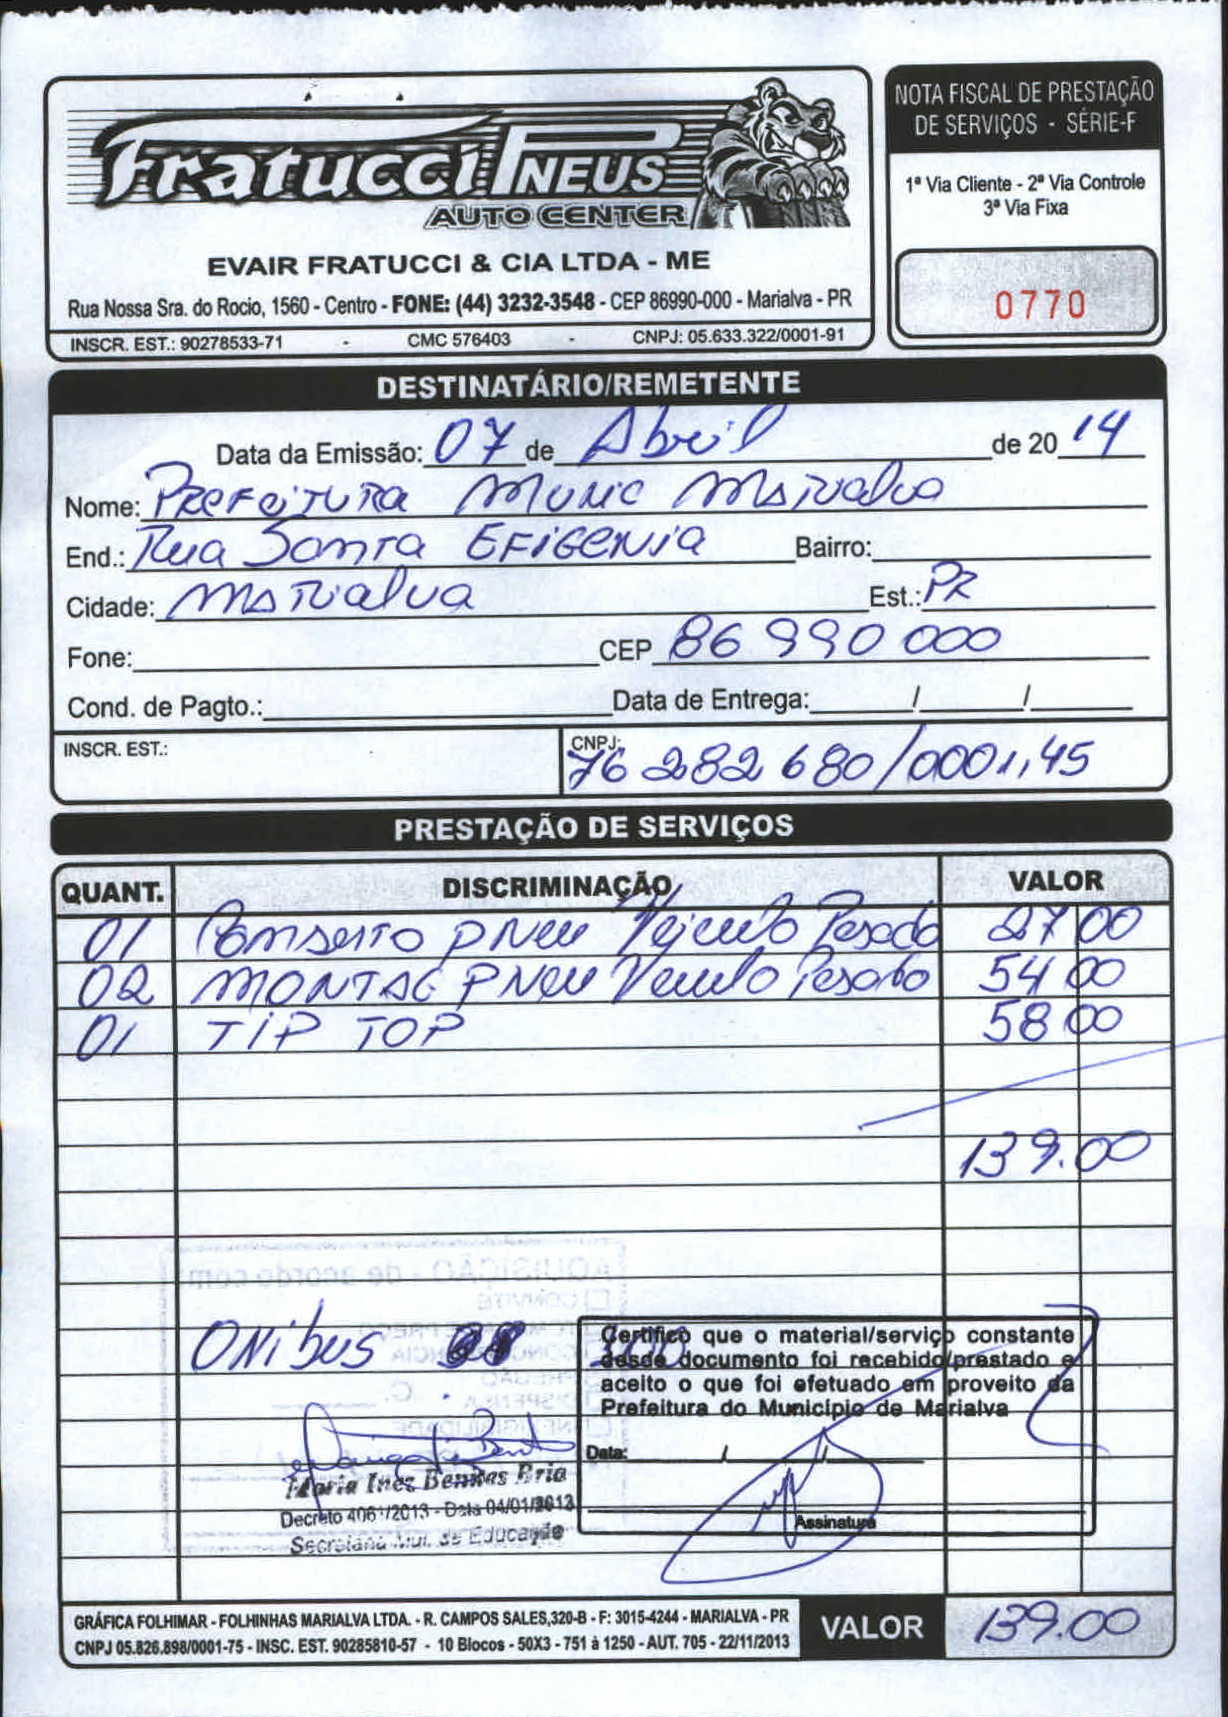 Fratucci PNEUS
AUTO CENTER
EVAIR FRATUCCI & CIA LTDA - ME
Rua Nossa Sra. do Rocio, 1560 - Centro - FONE: (44) 3232-3548 - CEP 86990-000 - Marialva - PR
INSCR. EST.: 90278533-71 - CMC 576403 - CNPJ: 05.633.322/0001-91
NOTA FISCAL DE PRESTAÇÃO
DE SERVIÇOS - SÉRIE-F
1ª Via Cliente - 2ª Via Controle
3ª Via Fixa
0770
DESTINATÁRIO/REMETENTE
Data da Emissão: 07 de Abril de 2014
Nome: Prefeitura Munic Marialva
End.: Rua Santa Efigenia Bairro:
Cidade: Marialva Est.: PR
Fone: CEP 86 990 000
Cond. de Pagto.: Data de Entrega: / /
INSCR. EST.: CNPJ: 76 282 680/0001,45
PRESTAÇÃO DE SERVIÇOS
QUANT. DISCRIMINAÇÃO VALOR
01 Conserto pneu Veiculo Pesado 27 00
02 MONTAG PNeu Veiculo Pesado 54 00
01 TIP TOP 58 00
139.00
AQUISIÇÃO - de acordo com
CONVITE
ONibus
Certifico que o material/serviço constante
desde documento foi recebido/prestado e
aceito o que foi efetuado em proveito da
Prefeitura do Município de Marialva
Data: / /
Assinatura
Maria Inez Benites Bria
Decreto 4061/2013 - Data 04/01/2013
Secretaria Mun. de Educação
GRÁFICA FOLHIMAR - FOLHINHAS MARIALVA LTDA. - R. CAMPOS SALES,320-B - F: 3015-4244 - MARIALVA - PR
CNPJ 05.826.898/0001-75 - INSC. EST. 90285810-57 - 10 Blocos - 50X3 - 751 à 1250 - AUT. 705 - 22/11/2013
VALOR 139.00